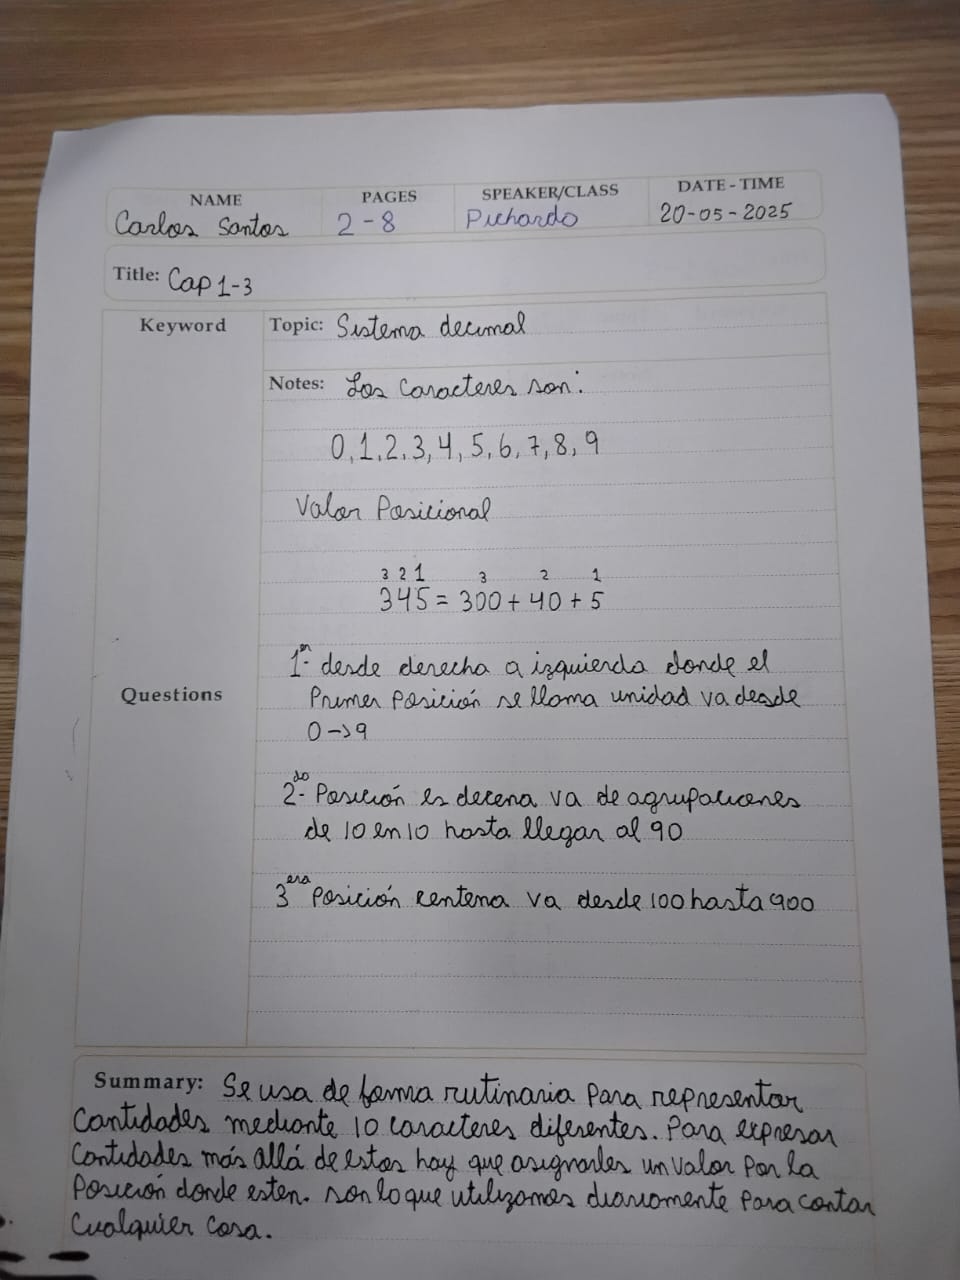 NAME PAGES SPEAKER/CLASS DATE - TIME
Carlos Santos 2-8 Pichardo 20-05-2025
Title: Cap 1-3
Keyword
Topic: Sistema decimal
Notes: Los caracteres son:
0,1,2,3,4,5,6,7,8,9
Valor Posicional
3 2 1 3 2 1
345 = 300 + 40 + 5
1er- desde derecha a izquierda donde el
Primer posición se llama unidad va desde
0->9
Questions
2do- Posición es decena va de agrupaciones
de 10 en 10 hasta llegar al 90
3era Posición centena va desde 100 hasta 900
Summary: Se usa de forma rutinaria Para representar
Cantidades mediante 10 caracteres diferentes. Para expresar
Cantidades más allá de estos hay que asignarles un valor Por la
Posición donde esten. son lo que utilizamos diariamente Para contar
Cualquier cosa.